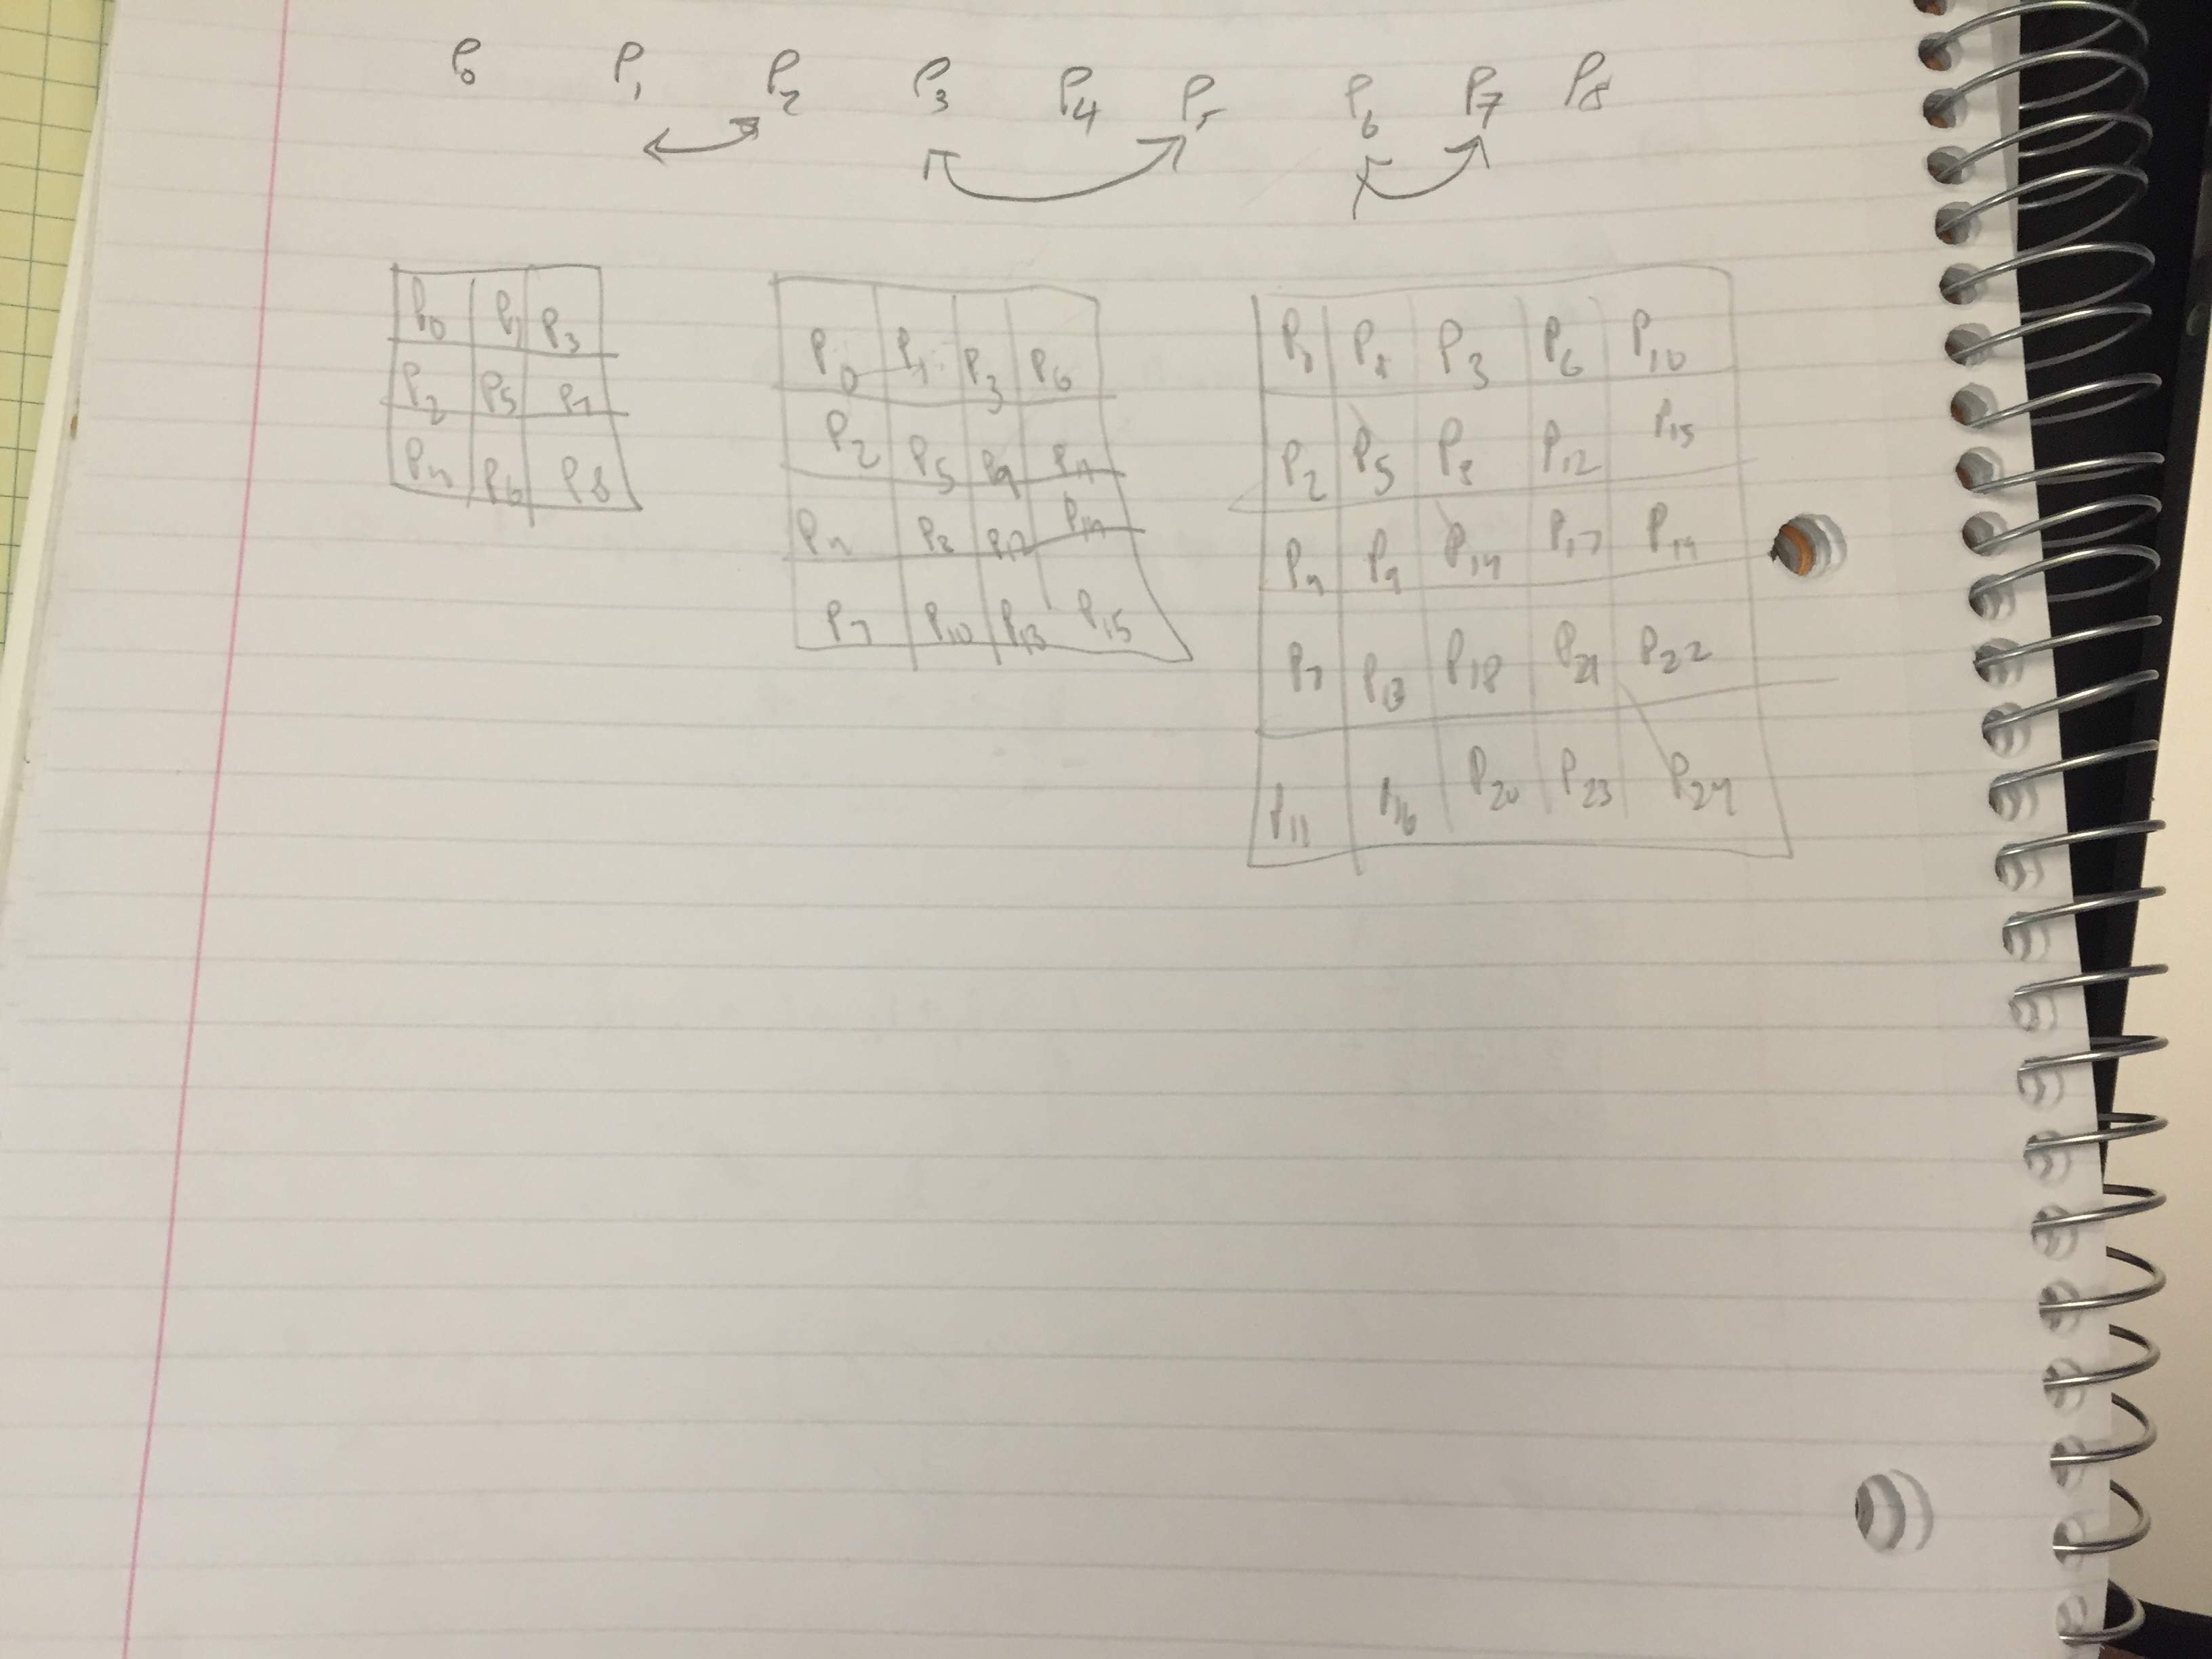 P0 P1 P2 P3 P4 P5 P6 P7 P8
P0 P1 P3
P2 P5 P7
P4 P6 P8
P0 P1 P3 P6
P2 P5 P9 P11
P4 P8 P12 P14
P7 P10 P13 P15
P1 P3 P6 P10
P2 P5 P8 P12 P15
P4 P9 P14 P17 P19
P7 P13 P18 P21 P22
P11 P16 P20 P23 P24